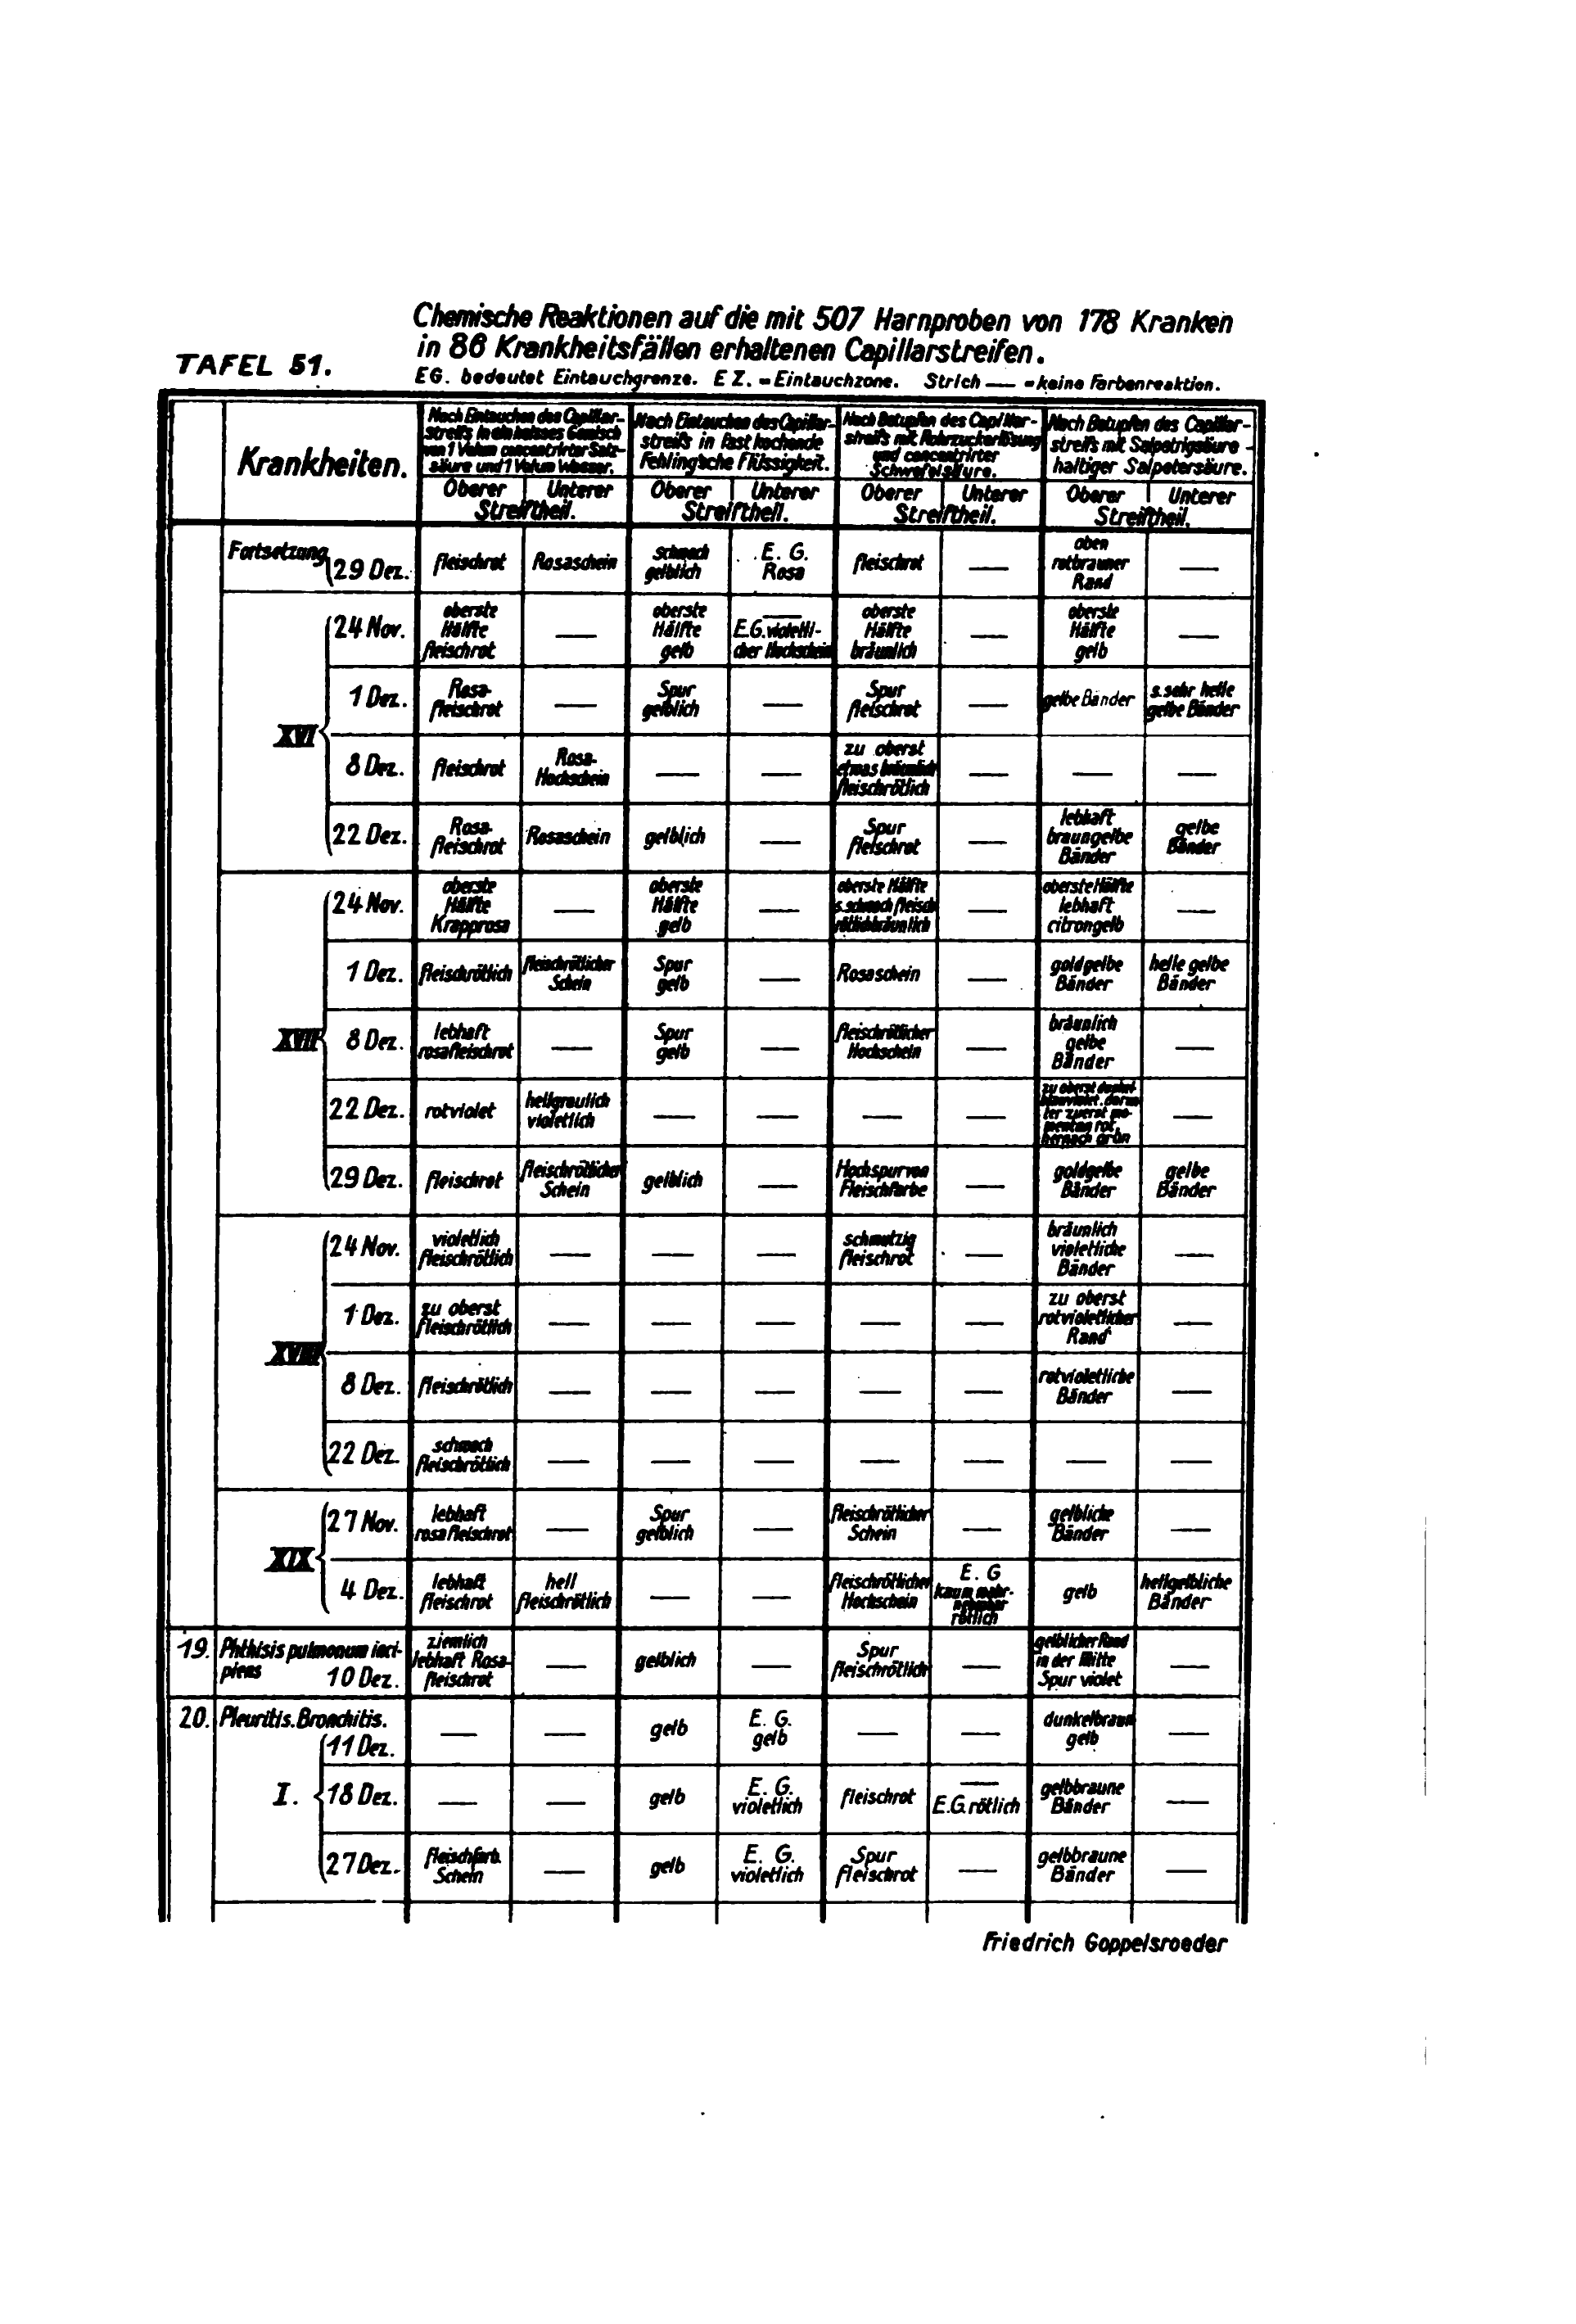 Chemische Reaktionen auf die mit 507 Harnproben von 178 Kranken
in 86 Krankheitsfällen erhaltenen Capillarstreifen.
TAFEL 51.
EG. bedeutet Eintauchgrenze. E Z. = Eintauchzone. Strich — = keine Farbenreaktion.
Krankheiten.
Nach Eintauchen des Capillar-
streifs in ein heisses Gemisch
von 1 Volum concentrirter Salz-
säure und 1 Volum Wasser.
Nach Eintauchen des Capillar-
streifs in fast kochende
Fehling'sche Flüssigkeit.
Nach Betupfen des Capillar-
streifs mit Rohrzuckerlösung
und concentrirter
Schwefelsäure.
Nach Betupfen des Capillar-
streifs mit Salpetrigsäure-
haltiger Salpetersäure.
Oberer Unterer Oberer Unterer Oberer Unterer Oberer Unterer
Streiftheil. Streiftheil. Streiftheil. Streiftheil.
Fortsetzung
29 Dez. fleischrot Rosaschein schwach gelblich E. G. Rosa fleischrot — oben rotbrauner Rand —
XVI
24 Nov. oberste Hälfte fleischrot — oberste Hälfte gelb — E.G. violettli-cher Hochschein oberste Hälfte bräunlich — oberste Hälfte gelb —
1 Dez. Rosa-fleischrot — Spur gelblich — Spur fleischrot — gelbe Bänder s. sehr helle gelbe Bänder
8 Dez. fleischrot Rosa-Hochschein — — zu oberst etwas bräunlich fleischrötlich — — —
22 Dez. Rosa-fleischrot Rosaschein gelblich — Spur fleischrot — lebhaft braungelbe Bänder gelbe Bänder
XVII
24 Nov. oberste Hälfte Krapprosa — oberste Hälfte gelb — oberste Hälfte s. schwach fleisch rötlichbräunlich — oberste Hälfte lebhaft citrongelb —
1 Dez. fleischrötlich fleischrötlicher Schein Spur gelb — Rosaschein — goldgelbe Bänder helle gelbe Bänder
8 Dez. lebhaft rosafleischrot — Spur gelb — fleischrötlicher Hochschein — bräunlich gelbe Bänder —
22 Dez. rotviolet hellgraulich violetlich — — — — zu oberst dunkel blauviolet. darun ter zuerst mo-mentan rot, hernach grün —
29 Dez. fleischrot fleischrötlicher Schein gelblich — Hochspur von Fleischfarbe — goldgelbe Bänder gelbe Bänder
XVIII
24 Nov. violetlich fleischrötlich — — — schmutzig fleischrot — bräunlich violetliche Bänder —
1 Dez. zu oberst fleischrötlich — — — — — zu oberst rotvioletlicher Rand —
8 Dez. fleischrötlich — — — — — rotvioletliche Bänder —
22 Dez. schwach fleischrötlich — — — — — — —
XIX
27 Nov. lebhaft rosafleischrot — Spur gelblich — fleischrötlicher Schein — gelbliche Bänder —
4 Dez. lebhaft fleischrot hell fleischrötlich — — fleischrötlicher Hochschein E. G kaum wahr-nehmbar rötlich gelb hellgelbliche Bänder
19. Phthisis pulmonum inci-
piens 10 Dez. ziemlich lebhaft Rosa-fleischrot — gelblich — Spur fleischrötlich — gelblicher Rand in der Mitte Spur violet —
20. Pleuritis. Bronchitis.
I.
11 Dez. — — gelb E. G. gelb — — dunkelbraun gelb —
18 Dez. — — gelb E. G. violetlich fleischrot — E.G. rötlich gelbbraune Bänder —
27 Dez. fleischfarb. Schein — gelb E. G. violetlich Spur fleischrot — gelbbraune Bänder —
Friedrich Goppelsroeder